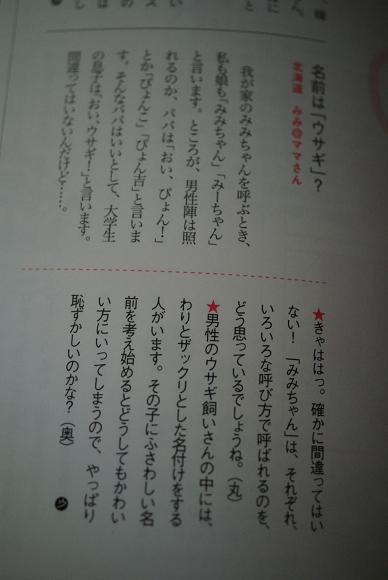 名前は「ウサギ」?
北海道 みみ@ママさん
我が家のみみちゃんを呼ぶとき、
私も娘も「みみちゃん」「みーちゃん」
と言います。ところが、男性陣は照
れるのか、パパは「おい、ぴょん!」
とか「ぴょんこ」「ぴょん吉」と言いま
す。そんなパパはいいとして、大学生
の息子は「おい、ウサギ!」と言います。
間違ってはいないんだけど……。
★きゃははっ。確かに間違ってはい
ない!「みみちゃん」は、それぞれ、
いろいろな呼び方で呼ばれるのを、
どう思っているでしょうね。(丸)
★男性のウサギ飼いさんの中には、
わりとザックリとした名付けをする
人がいます。その子にふさわしい名
前を考え始めるとどうしてもかわい
い方にいってしまうので、やっぱり
恥ずかしいのかな?(奥)